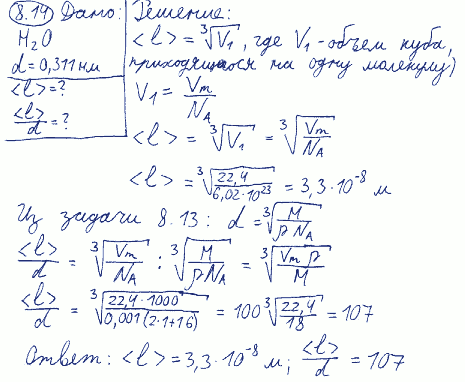 8.14 Дано: Решение:
H₂O
d = 0,311 нм
<l> = ?
<l>/d = ?
<l> = ∛V₁, где V₁ - объем куба,
приходящегося на одну молекулу)
V₁ = Vm/NA
<l> = ∛V₁ = ∛(Vm/NA)
<l> = ∛(22,4/6,02·10²³) = 3,3·10⁻⁸ м
Из задачи 8.13: d = ∛(M/ρNA)
<l>/d = ∛(Vm/NA) : ∛(M/ρNA) = ∛(Vm ρ/M)
<l>/d = ∛(22,4·1000/0,001(2·1+16)) = 100∛(22,4/18) = 107
Ответ: <l> = 3,3·10⁻⁸ м; <l>/d = 107